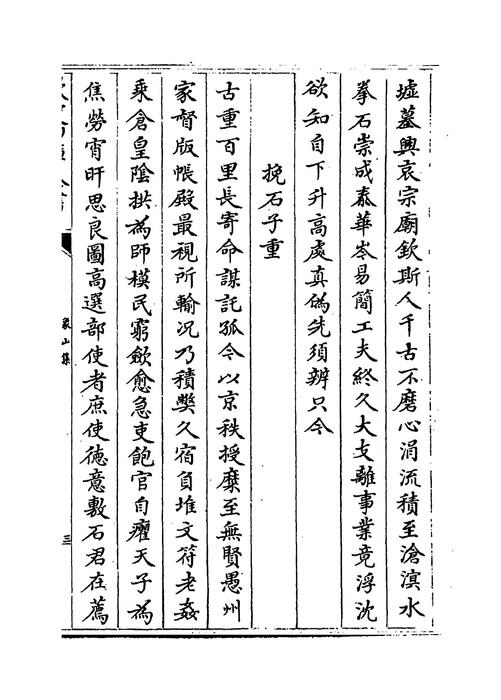 墟墓興哀宗廟欽斯人千古不磨心涓流積至滄溟水
拳石崇成泰華岑易簡工夫終久大支離事業竟浮沈
欲知自下升高處真偽先須辨只今
挽石子重
古重百里長寄命謀託孤今以京秩授糜至無賢愚州
家督版帳殿最視所輸况乃積獘久宿負堆文符老姦
乘倉皇陰拱為師模民窮斂愈急吏飽官自癯天子為
焦勞宵旰思良圖高選部使者庶使德意敷石君在薦
象山集
三